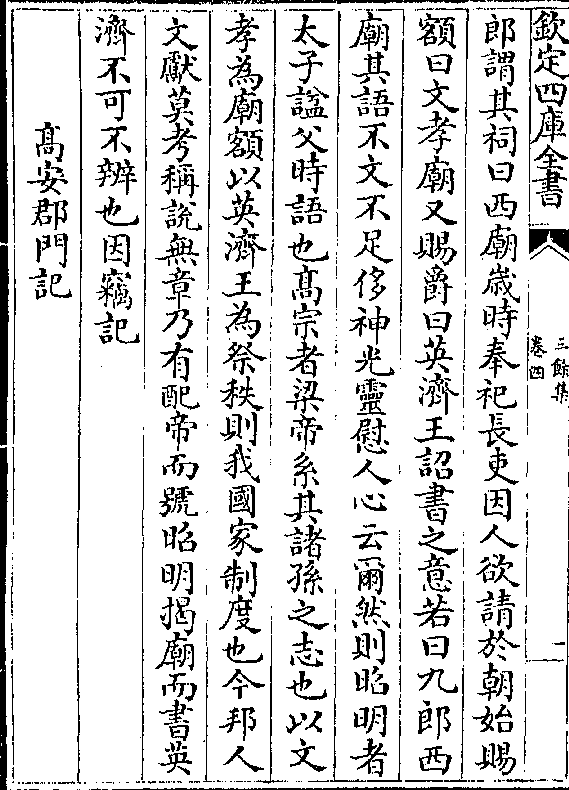 欽定四庫全書
三餘集
卷四
二
郎謂其祠曰西廟歳時奉祀長吏因人欲請於朝始賜
額曰文孝廟又賜爵曰英濟王詔書之意若曰九郎西
廟其語不文不足侈神光靈慰人心云爾然則昭明者
太子諡父時語也髙宗者梁帝系其諸孫之志也以文
孝為廟額以英濟王為祭秩則我國家制度也今邦人
文獻莫考稱說無章乃有配帝而號昭明揭廟而書英
濟不可不辨也因竊記
髙安郡門記